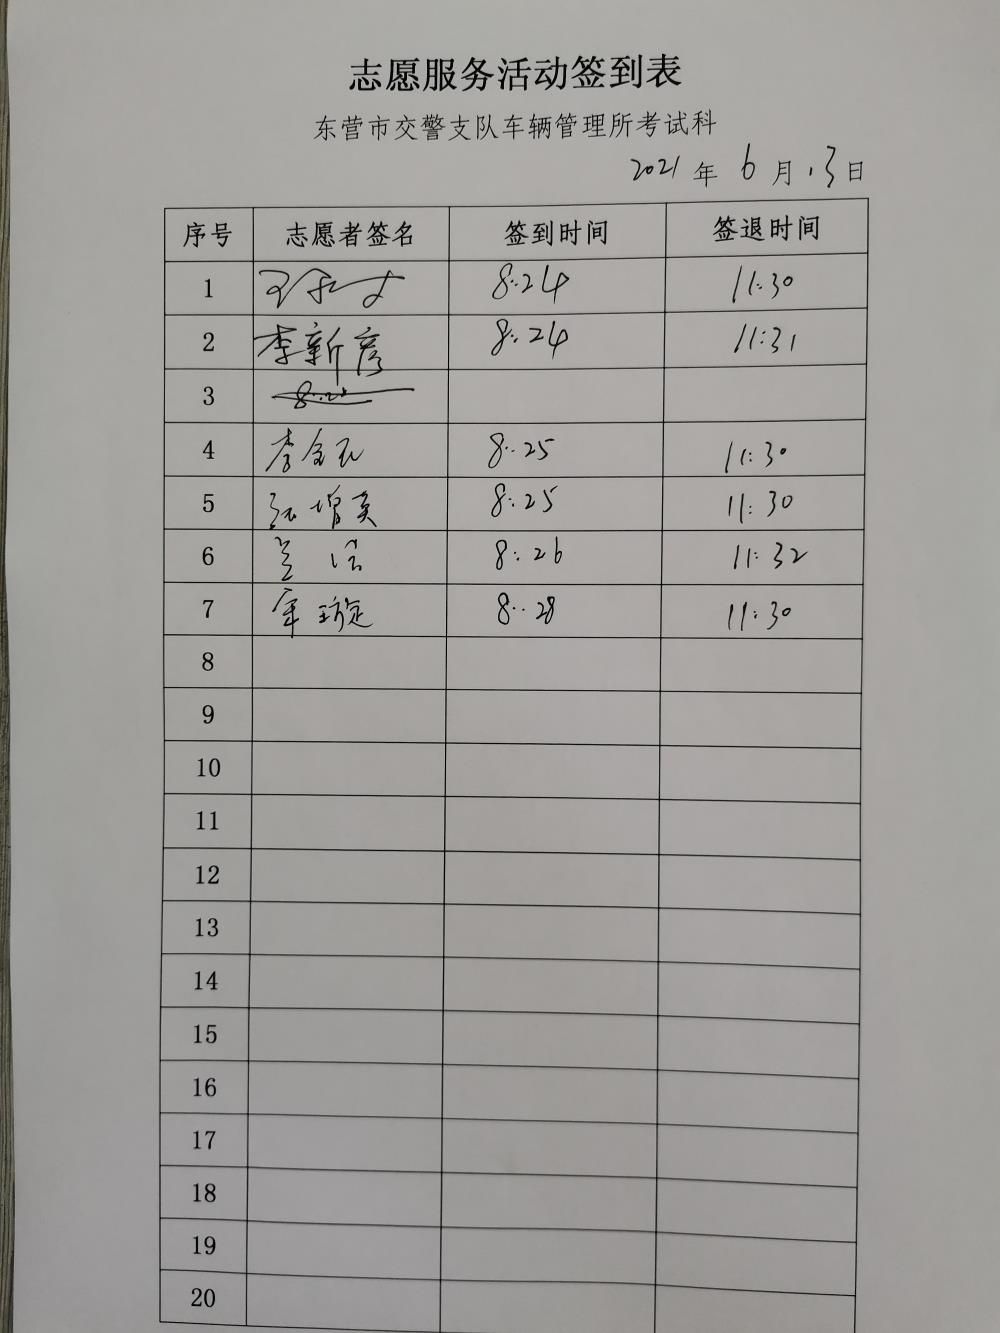 志愿服务活动签到表
东营市交警支队车辆管理所考试科
2021 年 6 月 13 日
序号 志愿者签名 签到时间 签退时间
1 8:24 11:30
2 李新彦 8:24 11:31
3 8:25
4 李金 8:25 11:30
5 张增英 8:25 11:30
6 兰洁 8:26 11:32
7 璇 8:28 11:30
8
9
10
11
12
13
14
15
16
17
18
19
20